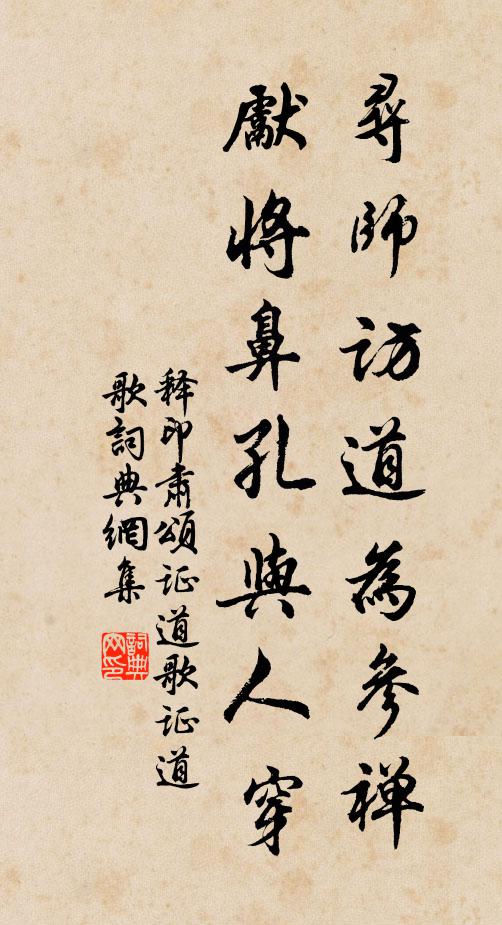 尋師訪道為參禪
獻將鼻孔與人穿
釋印肅頌证道歌证道
歌詞典網集
詞典网印